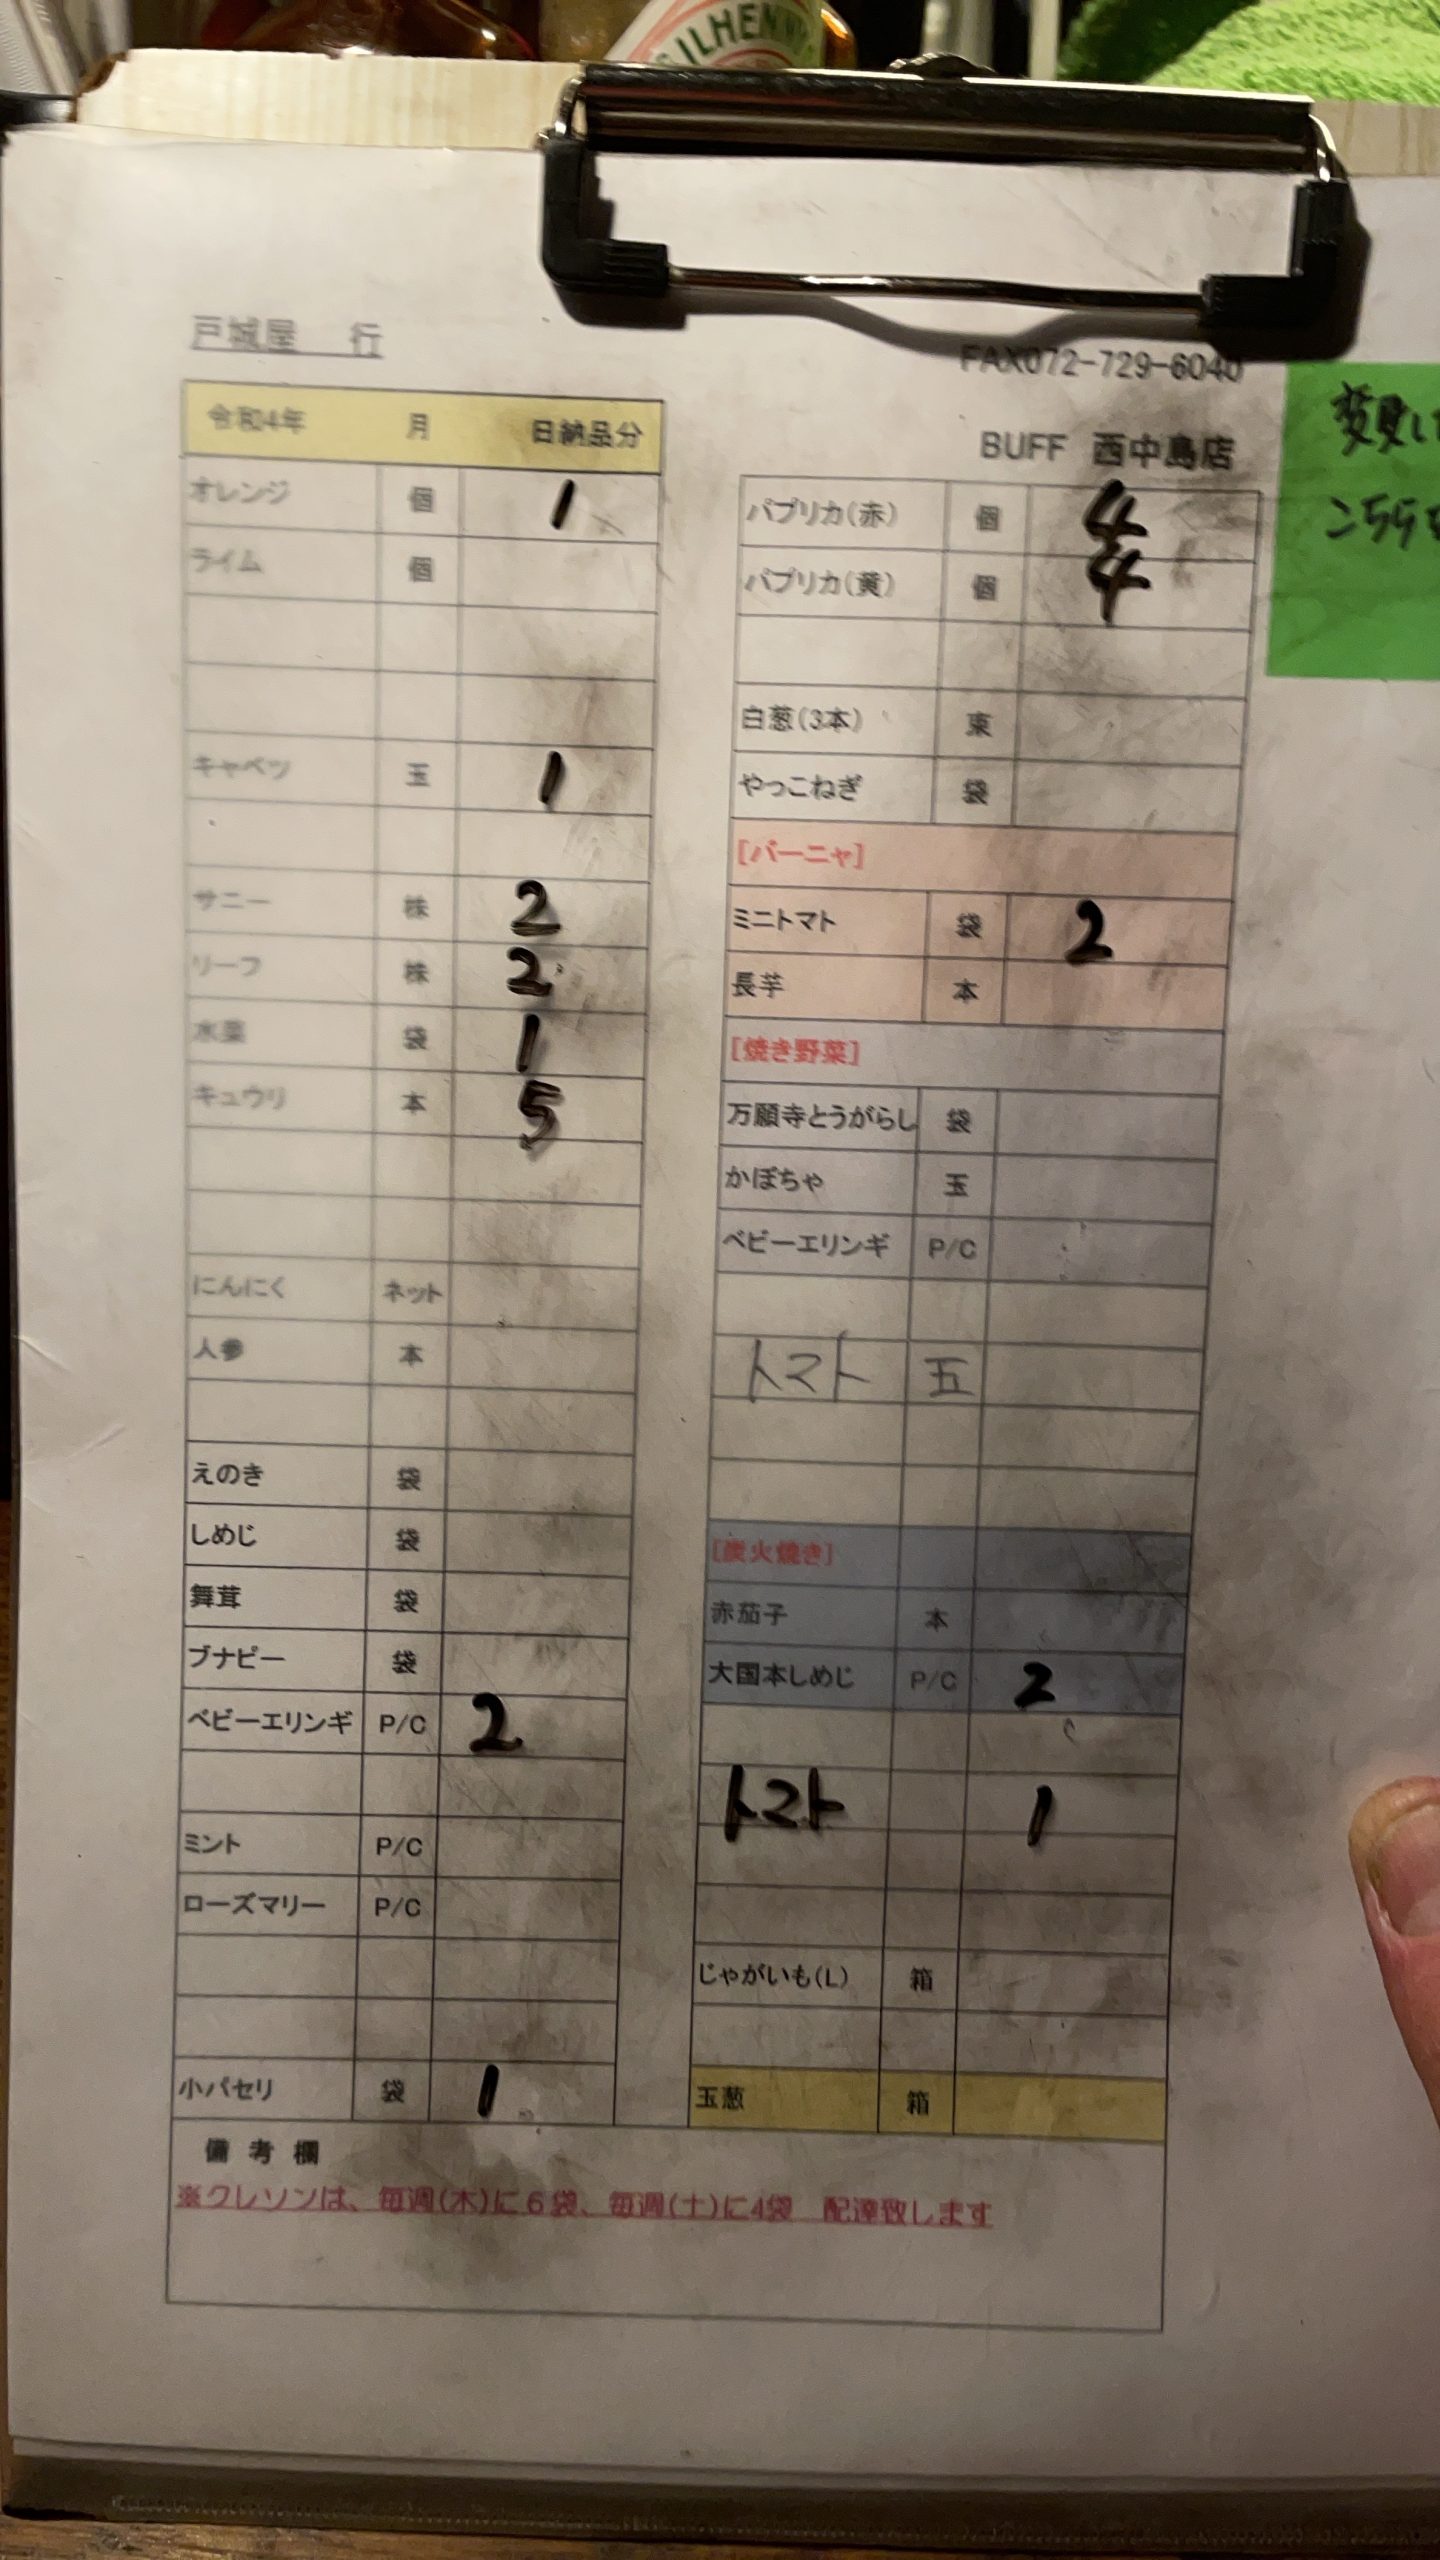 ILHENNY
戸城屋 行
FAX072-729-6040
BUFF 西中島店
令和4年 月 日納品分
オレンジ 個 1
ライム 個
キャベツ 玉 1
サニー 株 2
リーフ 株 2
水菜 袋 1
キュウリ 本 5
にんにく ネット
人参 本
えのき 袋
しめじ 袋
舞茸 袋
ブナピー 袋
ベビーエリンギ P/C 2
ミント P/C
ローズマリー P/C
小パセリ 袋 1
パプリカ(赤) 個 4
パプリカ(黄) 個 4
白葱(3本) 束
やっこねぎ 袋
[バーニャ]
ミニトマト 袋 2
長芋 本
[焼き野菜]
万願寺とうがらし 袋
かぼちゃ 玉
ベビーエリンギ P/C
トマト 玉
[炭火焼き]
赤茄子 本
大国本しめじ P/C 2
トマト 1
じゃがいも(L) 箱
玉葱 箱
備考欄
※クレソンは、毎週(木)に6袋、毎週(土)に4袋 配達致します
こちら